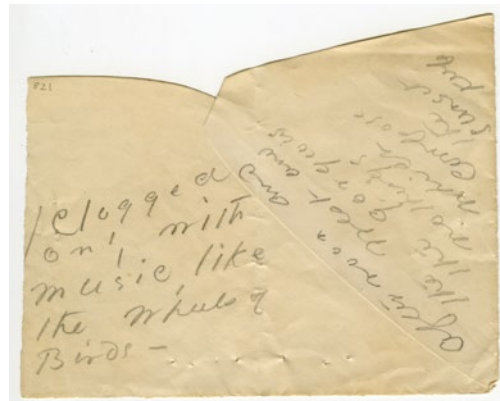 821
Clogged
only with
Music, like
the Wheels of
Birds -
Afternoon and
the West and
the gorgeous
nothings
which
compose
the
sunset
keep